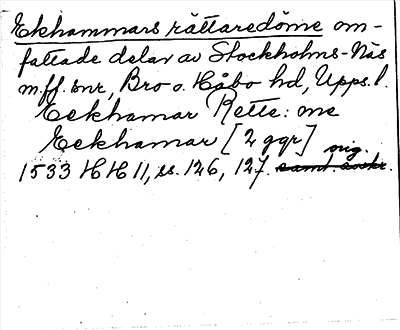 Ekhammars rättaredöme om-
fattade delar av Stockholms-Näs
m.fl. snr, Bro o. Håbo hd, Upps. l.
Eckhamar Rette: me
Eeckhamar [2 ggr]
orig.
1533 HH 11, ss. 126, 127. samt. avskr.